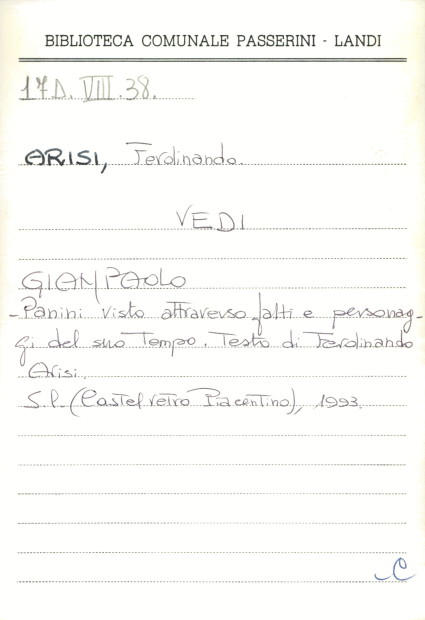 BIBLIOTECA COMUNALE PASSERINI - LANDI
17D.VIII.38.
ARISI, Ferdinando.
VEDI
GIAMPAOLO
-Panini visto attraverso fatti e personag-
gi del suo Tempo. Testo di Ferdinando
Arisi.
S.l. (Castelvetro Piacentino), 1993.
C